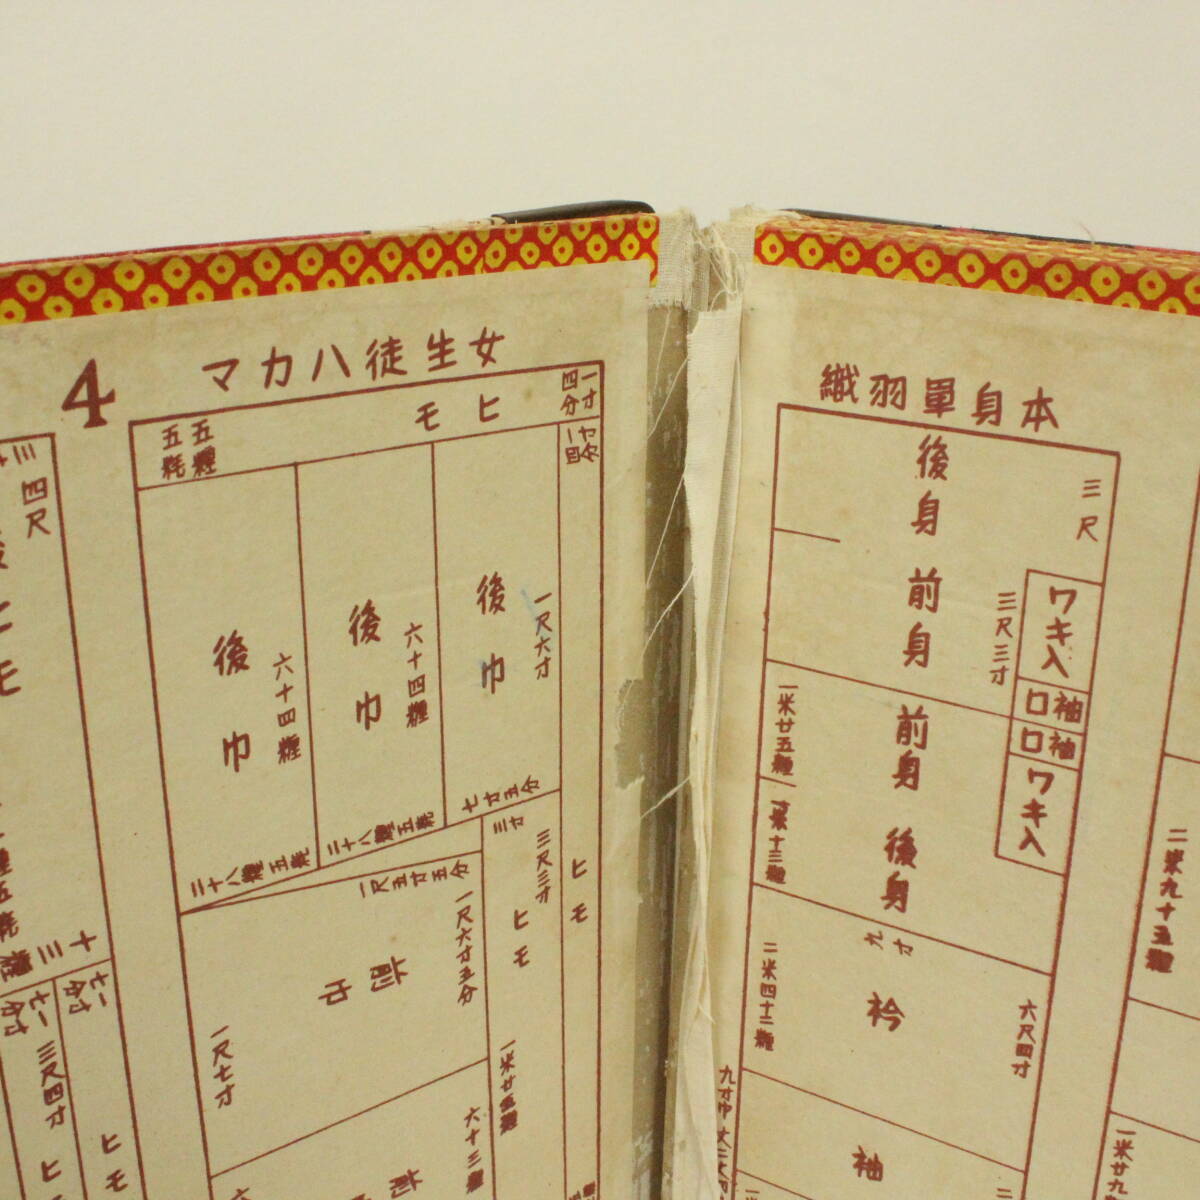 4
マカハ徒生女
一寸四分
ヒモ
五糎五粍
後巾
一尺六寸
後巾
六十四糎
後巾
六十四糎
七寸五分
二十八糎五粍
二十八糎五粍
一尺五寸五分
三寸
三尺三寸
ヒモ
ヒモ
一尺六寸五分
前巾
一尺七寸
一米廿五糎
六十三糎
前
四尺
三尺四寸
ヒモ
ヒモ
織羽單身本
後身
三尺
前身
三尺三寸
ワキ入
袖口
袖口
ワキ入
前身
後身
一米廿五糎
一米十三糎
九寸
衿
六尺四寸
二米四十二糎
袖
二米九十五糎
一米廿九